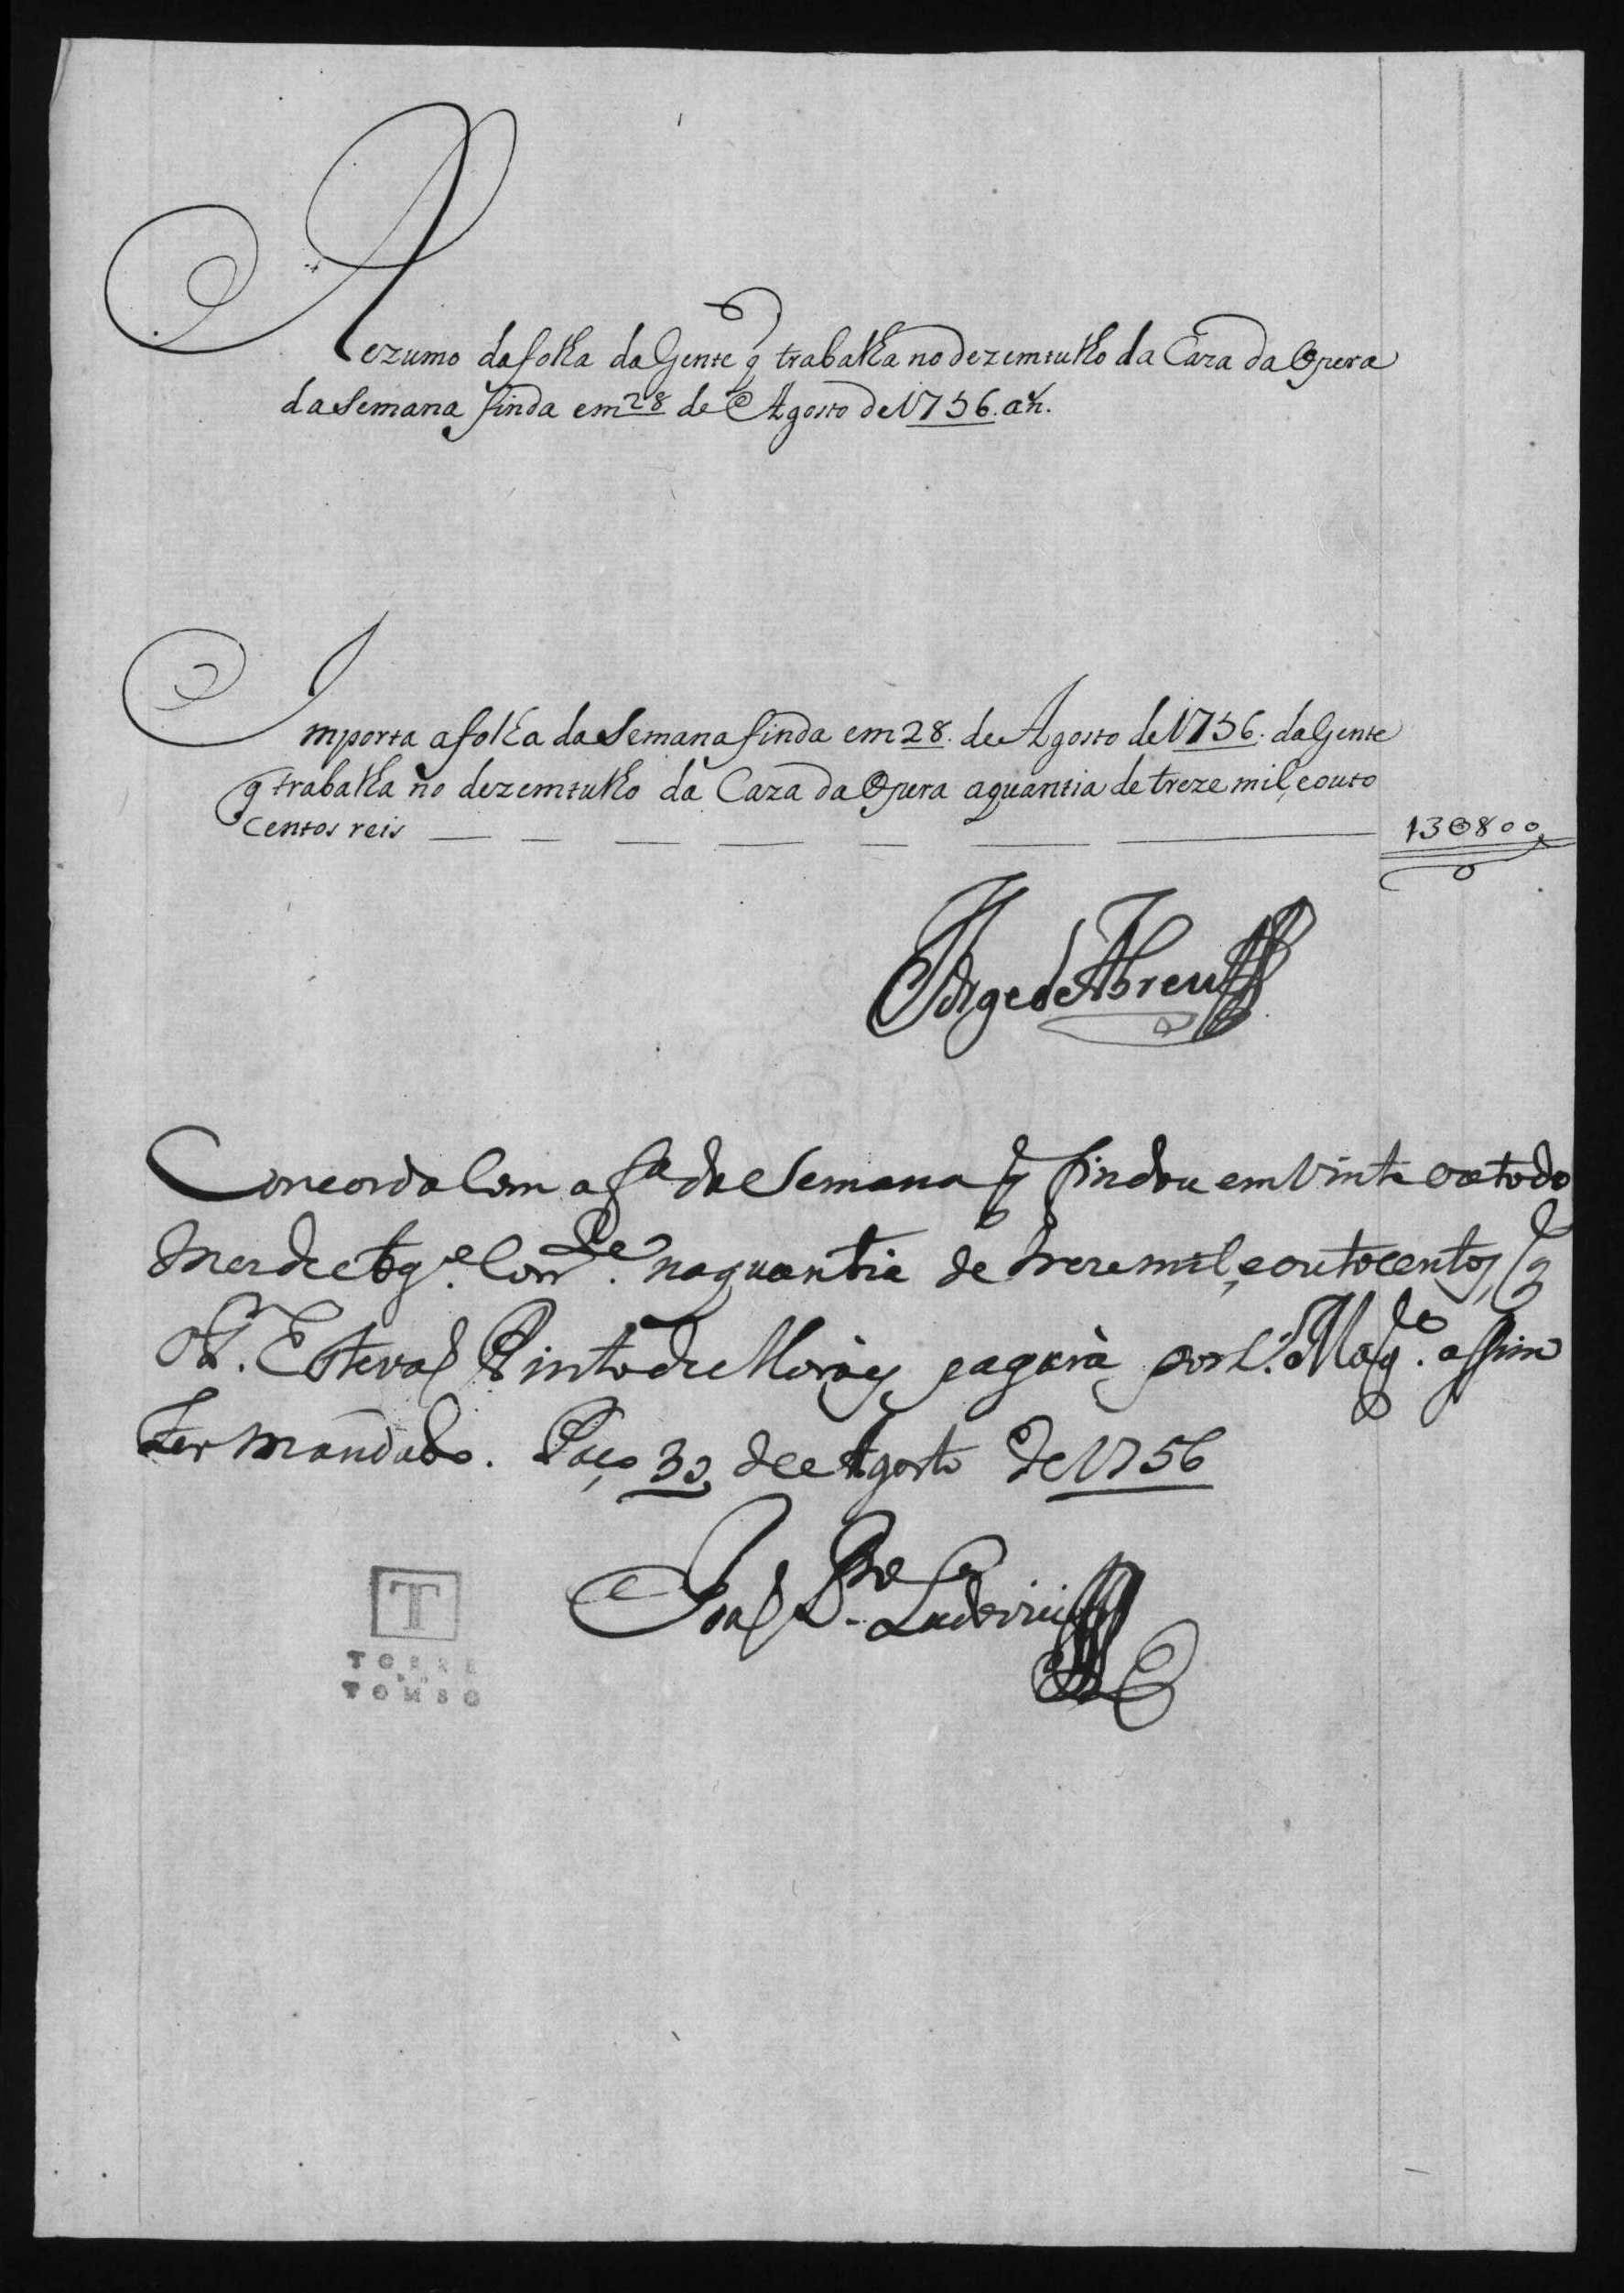 Rezumo da folha da Gente q̃ trabalha no dezemtulho da Caza da Opera
da Semana finda em 28 de Agosto de 1756. an.
Importa a folha da Semana finda em 28. de Agosto de 1756. da Gente
q̃ trabalha no dezemtulho da Caza da Opera a quantia de treze mil, e outo
Centos reis
13$800
Jorge de Abreu
Concorda Com a fa. da Semana q̃ findou em Vinte oeto do
mez de Agto. Corrte. na quantia de treze mil, e outocentos, q̃
o Sr. Estevaõ Pinto de Moraes pagarà por S. Magde. assim
ter mandado. Paço 30 de Agosto de 1756
Joaõ Pe. Ludovici
T
TORRE
DO
TOMBO